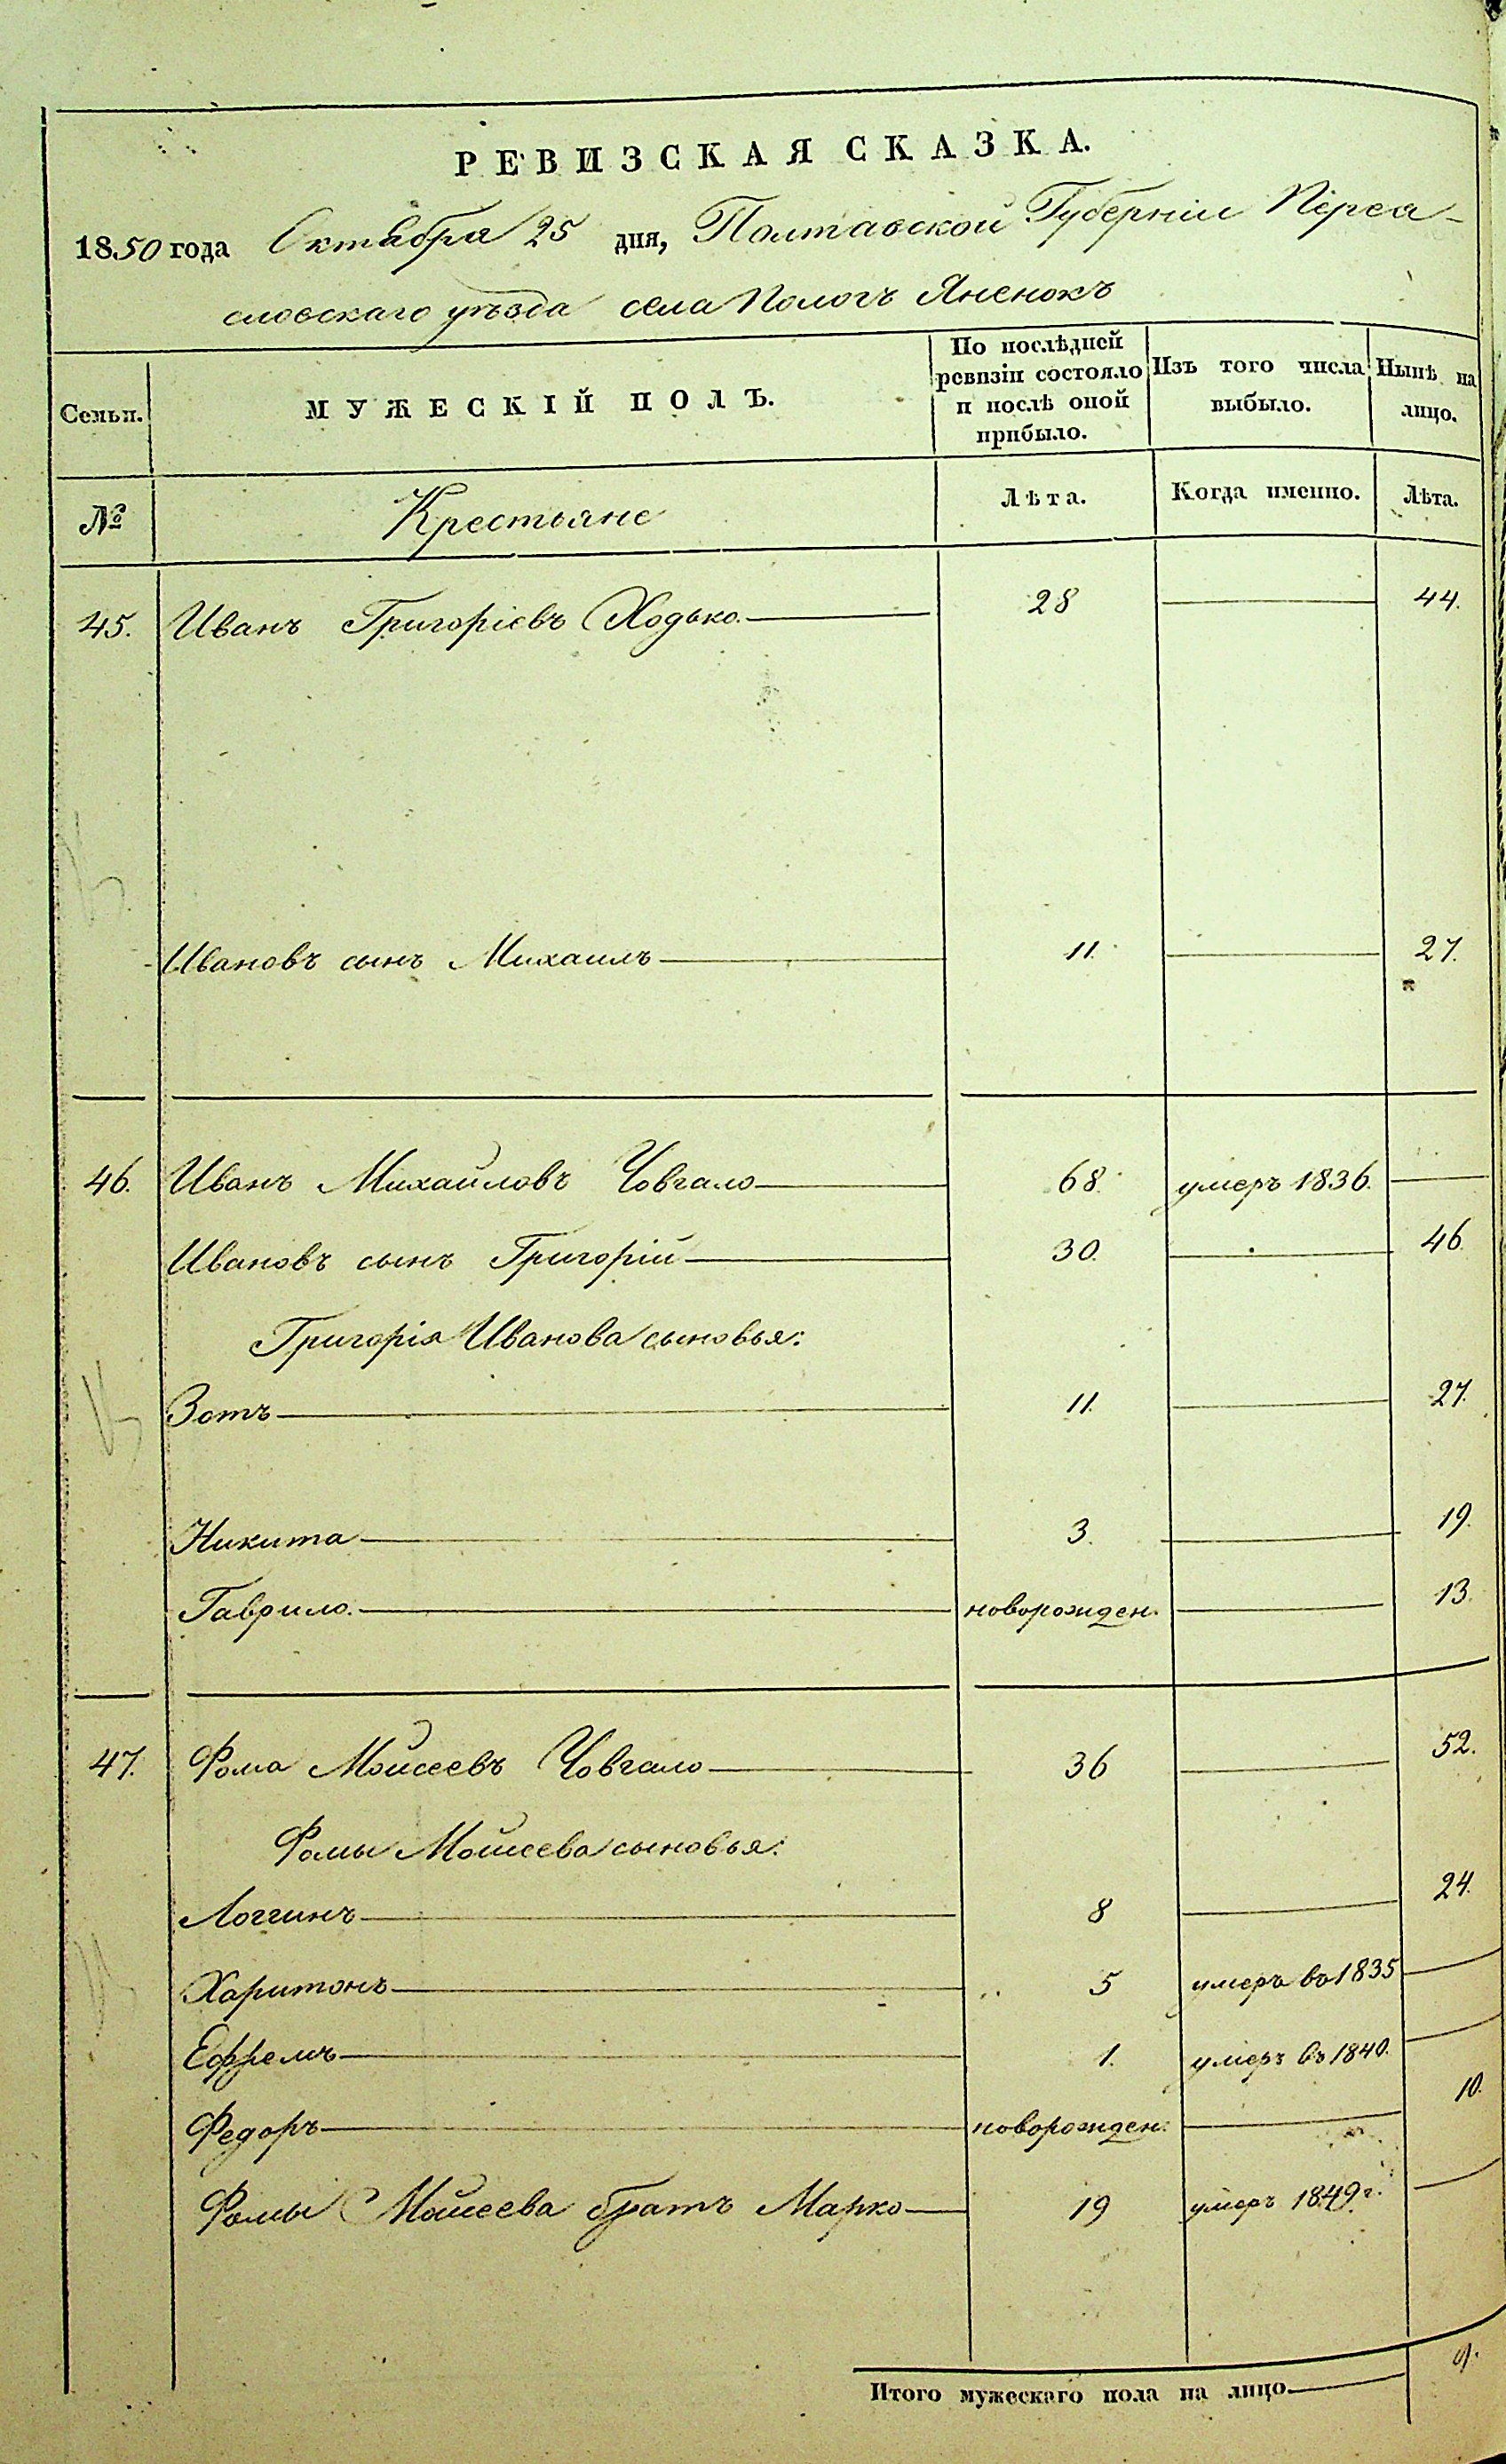 РЕВИЗСКАЯ СКАЗКА.
1850 года Октября 25 дня, Полтавской Губерніи Перея-
словскаго уѣзда села Пологъ Яненокъ
Семьи. МУЖЕСКІЙ ПОЛЪ. По послѣдней ревизіи состояло и послѣ оной прибыло. Изъ того числа выбыло. Нынѣ на лицо.
№ Крестьяне Лѣта. Когда именно. Лѣта.
45. Иванъ Григоріевъ Ходько. 28 44.
Ивановъ сынъ Михаилъ 11. 27.
46. Иванъ Михайловъ Човгало 68. умеръ 1836.
Ивановъ сынъ Григорій 30. 46.
Григорія Иванова сыновья:
Зотъ 11. 27.
Никита 3. 19.
Гаврило. новорожден. 13.
47. Фома Мойсеевъ Човгало 36 52.
Фомы Мойсеева сыновья:
Логгинъ 8 24.
Харитонъ 5 умеръ въ 1835
Ефремъ 1. умеръ въ 1840.
Федоръ новорожден. 10.
Фомы Мойсеева братъ Марко 19 умеръ 1849 г.
Итого мужескаго пола на лицо 9.